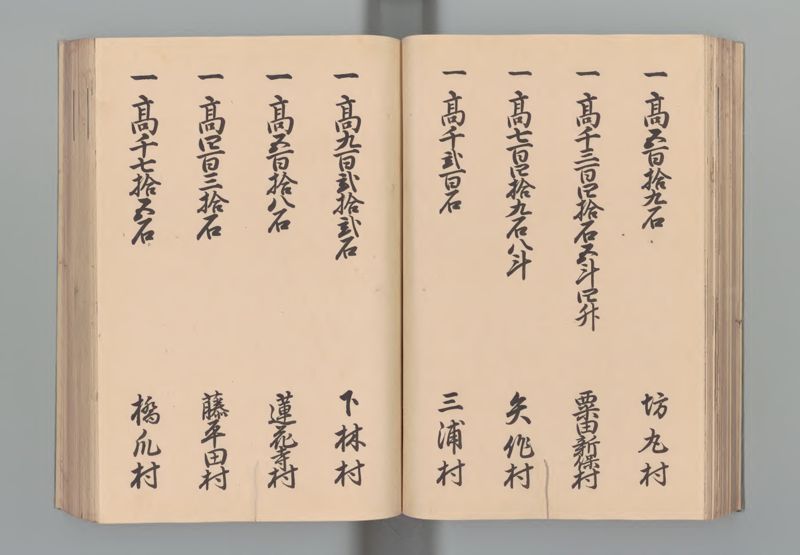 一 高五百拾九石 坊丸村
一 高千三百四拾石五斗四升 粟田新保村
一 高七百四拾九石八斗 矢作村
一 高千弐百石 三浦村
一 高九百弐拾弐石 下林村
一 高五百拾八石 蓮花寺村
一 高四百三拾石 藤平田村
一 高千七拾五石 橋爪村